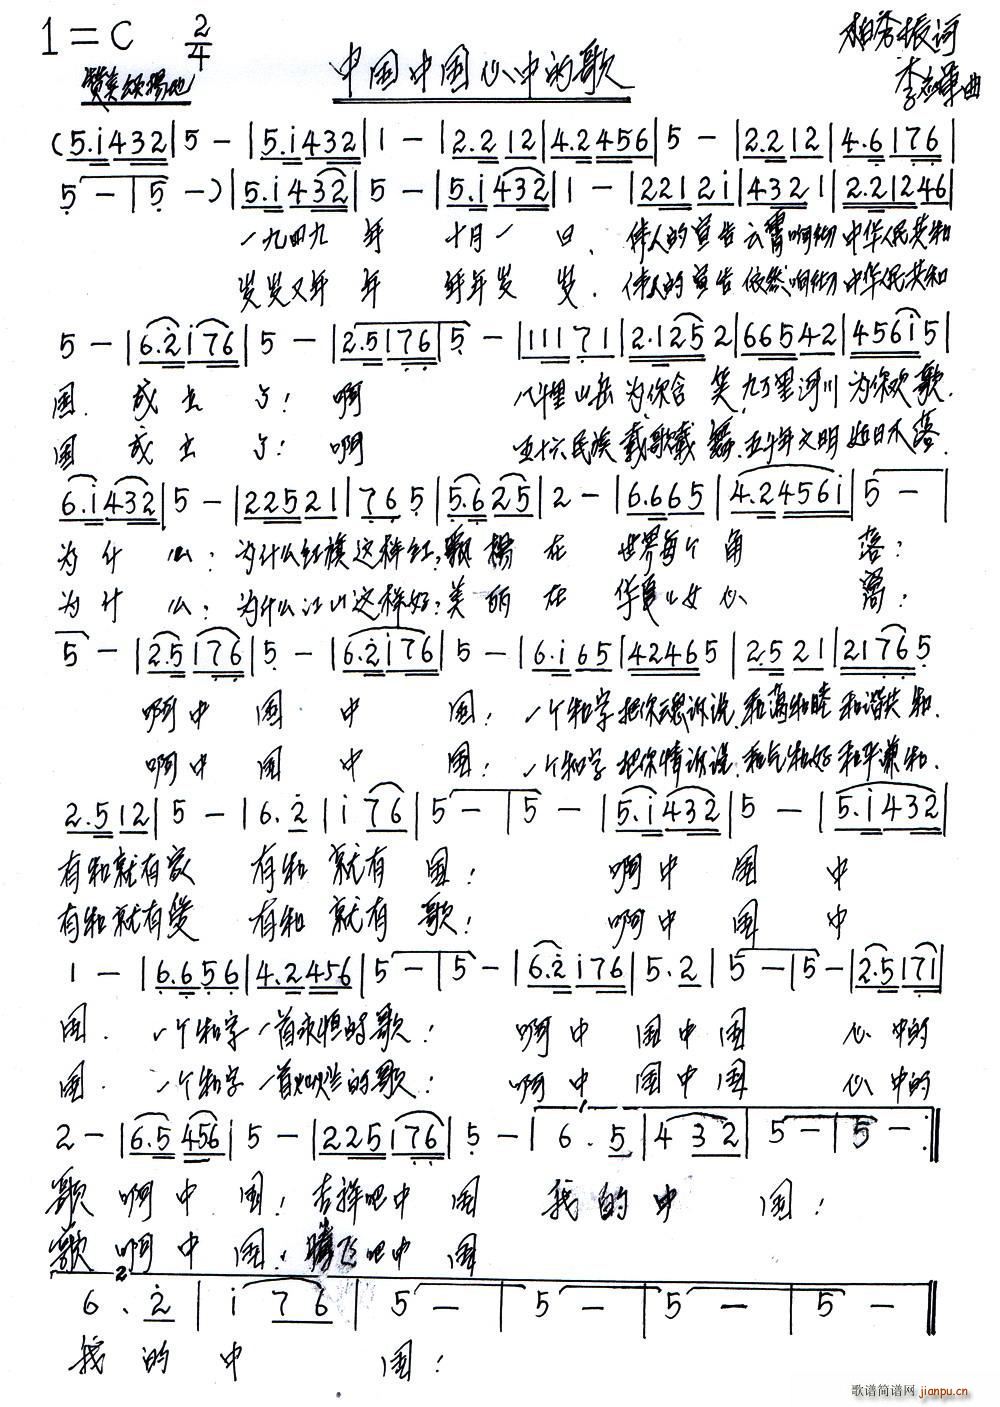 1=C 2/4
中国中国心中的歌
柏秀振词
赞美颂扬地
李志军曲
(5.i432|5-|5.i432|1-|2.212|4.2456|5-|2.212|4.6176|
5-|5-)|5.i432|5-|5.i432|1-|22121|4321|2.21246|
一九四九 年 十月一 日、伟人的宣告云霄响彻中华人民共和
岁岁又年 年 年年岁 岁、伟人的宣告依然响彻中华人民共和
5-|6.2i76|5-|2.5176|5-|11171|2.1252|66542|456i5|
国. 成立 了! 啊 八千里山岳为你含 笑,九万里河川为你欢歌.
国 成立 了! 啊 五十六民族载歌载 舞.五千年文明如日不落.
6.i432|5-|22521|765|5.625|2-|6.665|4.2456i|5-|
为什 么:为什么红旗这样红,飘扬 在 世界每个 角 落:
为什 么:为什么江山这样好,美丽 在 华夏儿女 心 窝:
5-|2.5176|5-|6.2i76|5-|6.i65|42465|2.521|21765
啊中 国 中 国:一个和字把你魂诉说,和满和睦和谐共和.
啊中 国 中 国:一个和字把你情诉说.和气和好和平兼和.
2.512|5-|6.2|i76|5-|5-|5.i432|5-|5.i432|
有和就有家 有和 就有 国: 啊中 国 中
有和就有爱 有和 就有 歌: 啊中 国 中
1-|6.656|4.2456|5-|5-|6.2i76|5.2|5-|5-|2.5171|
国. 一个和字 一首永恒的歌: 啊中 国中国 心中的
国. 一个和字 一首灿烂的歌: 啊中 国中国 心中的
2-|6.5456|5-|225176|5-|6.5|432|5-|5-:||
歌 啊中 国:吉祥吧中 国 我的中 国:
歌 啊中 国.腾飞吧中 国
2
6.2|i76|5-|5-|5-|5-||
我的 中 国:
歌谱简谱网 jianpu.cn